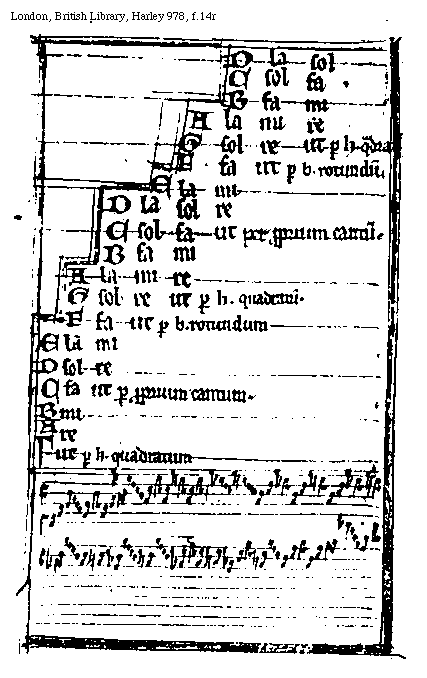 London, British Library, Harley 978, f.14r
D la sol
C sol fa
B fa mi
A la mi re
G sol re ut p h qdra
F fa ut p b. rotundū.
E la mi
D la sol re
C sol fa ut per pprium cantū.
B fa mi
A la mi re
G sol re ut p h. quadratū.
F fa ut p b. rotundum
E la mi
D sol re
C fa ut p pprium cantum.
B mi
A re
Γ ut p h. quadratum